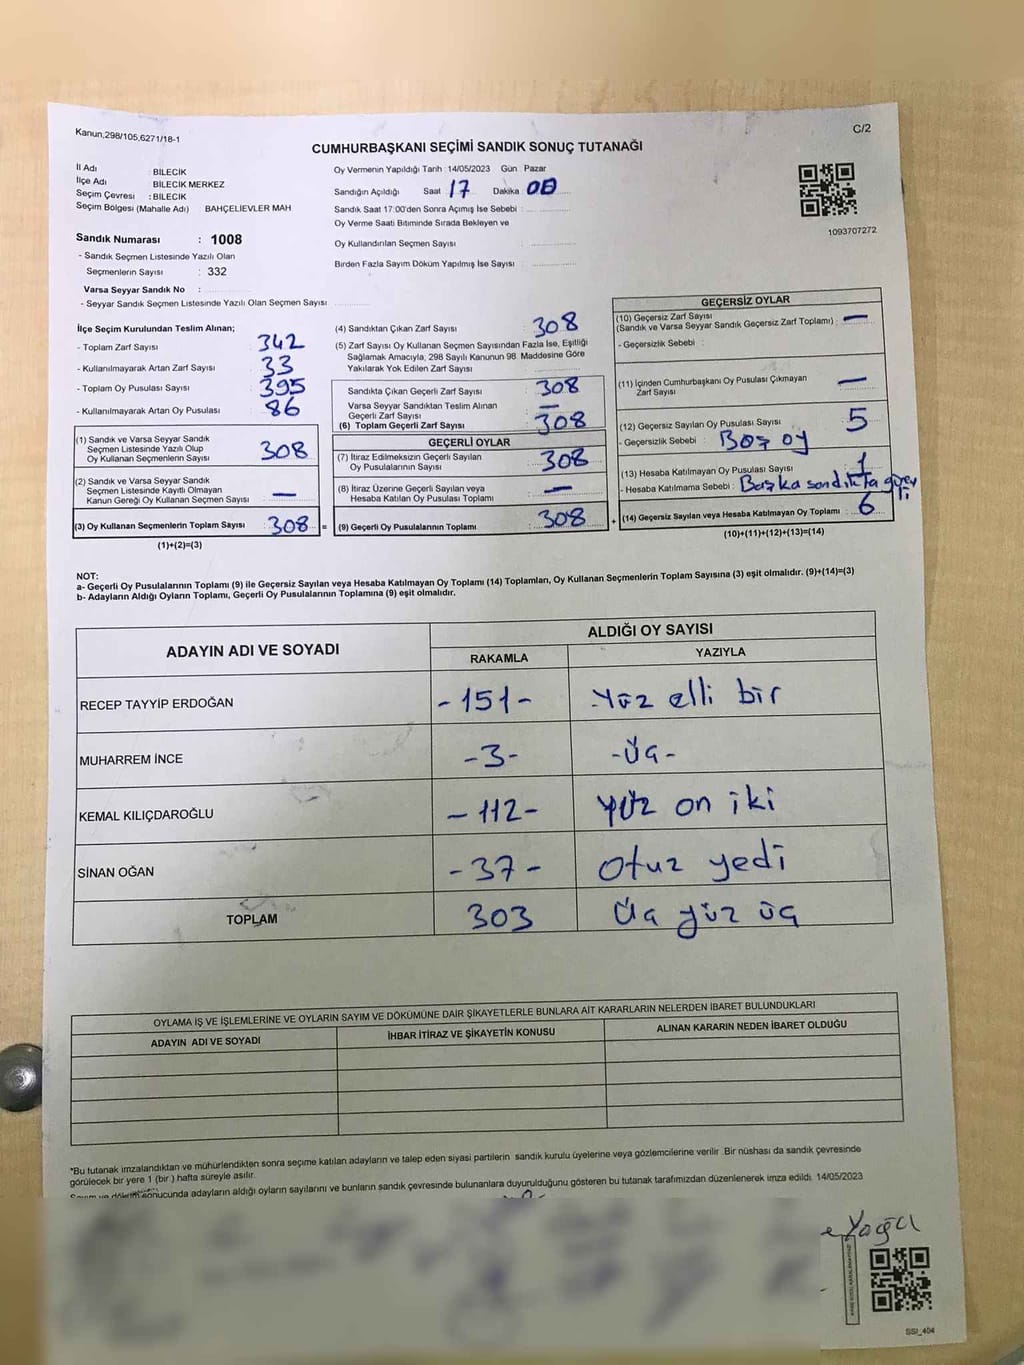 Kanun,298/105,6271/18-1
C/2
CUMHURBAŞKANI SEÇİMİ SANDIK SONUÇ TUTANAĞI
İl Adı : BİLECİK
İlçe Adı : BİLECİK MERKEZ
Seçim Çevresi : BİLECİK
Seçim Bölgesi (Mahalle Adı) BAHÇELİEVLER MAH
Sandık Numarası : 1008
- Sandık Seçmen Listesinde Yazılı Olan
Seçmenlerin Sayısı : 332
Varsa Seyyar Sandık No :
- Seyyar Sandık Seçmen Listesinde Yazılı Olan Seçmen Sayısı
Oy Vermenin Yapıldığı Tarih : 14/05/2023 Gün : Pazar
Sandığın Açıldığı Saat 17 Dakika 00
Sandık Saat 17:00'den Sonra Açımış İse Sebebi :
Oy Verme Saati Bitiminde Sırada Bekleyen ve
Oy Kullandırılan Seçmen Sayısı :
Birden Fazla Sayım Döküm Yapılmış İse Sayısı :
1093707272
İlçe Seçim Kurulundan Teslim Alınan;
- Toplam Zarf Sayısı : 342
- Kullanılmayarak Artan Zarf Sayısı : 33
- Toplam Oy Pusulası Sayısı : 395
- Kullanılmayarak Artan Oy Pusulası : 86
(1) Sandık ve Varsa Seyyar Sandık
Seçmen Listesinde Yazılı Olup
Oy Kullanan Seçmenlerin Sayısı : 308
(2) Sandık ve Varsa Seyyar Sandık
Seçmen Listesinde Kayıtlı Olmayan
Kanun Gereği Oy Kullanan Seçmen Sayısı : —
(3) Oy Kullanan Seçmenlerin Toplam Sayısı : 308 =
(1)+(2)=(3)
(4) Sandıktan Çıkan Zarf Sayısı : 308
(5) Zarf Sayısı Oy Kullanan Seçmen Sayısından Fazla İse, Eşitliği
Sağlamak Amacıyla, 298 Sayılı Kanunun 98. Maddesine Göre
Yakılarak Yok Edilen Zarf Sayısı :
Sandıkta Çıkan Geçerli Zarf Sayısı : 308
Varsa Seyyar Sandıktan Teslim Alınan
Geçerli Zarf Sayısı : —
(6) Toplam Geçerli Zarf Sayısı : 308
GEÇERLİ OYLAR
(7) İtiraz Edilmeksizin Geçerli Sayılan
Oy Pusulalarının Sayısı : 308
(8) İtiraz Üzerine Geçerli Sayılan veya
Hesaba Katılan Oy Pusulası Toplamı : —
(9) Geçerli Oy Pusulalarının Toplamı : 308 +
GEÇERSİZ OYLAR
(10) Geçersiz Zarf Sayısı
(Sandık ve Varsa Seyyar Sandık Geçersiz Zarf Toplamı) : —
- Geçersizlik Sebebi :
(11) İçinden Cumhurbaşkanı Oy Pusulası Çıkmayan
Zarf Sayısı : —
(12) Geçersiz Sayılan Oy Pusulası Sayısı : 5
- Geçersizlik Sebebi : Boş oy
(13) Hesaba Katılmayan Oy Pusulası Sayısı : 1
- Hesaba Katılmama Sebebi : Başka sandıkta
(14) Geçersiz Sayılan veya Hesaba Katılmayan Oy Toplamı : 6
(10)+(11)+(12)+(13)=(14)
NOT:
a- Geçerli Oy Pusulalarının Toplamı (9) ile Geçersiz Sayılan veya Hesaba Katılmayan Oy Toplamı (14) Toplamları, Oy Kullanan Seçmenlerin Toplam Sayısına (3) eşit olmalıdır. (9)+(14)=(3)
b- Adayların Aldığı Oyların Toplamı, Geçerli Oy Pusulalarının Toplamına (9) eşit olmalıdır.
ADAYIN ADI VE SOYADI
ALDIĞI OY SAYISI
RAKAMLA YAZIYLA
RECEP TAYYİP ERDOĞAN -151- Yüz elli bir
MUHARREM İNCE -3- -Üç-
KEMAL KILIÇDAROĞLU -112- yüz on iki
SİNAN OĞAN -37- Otuz yedi
TOPLAM 303 Üç yüz üç
OYLAMA İŞ VE İŞLEMLERİNE VE OYLARIN SAYIM VE DÖKÜMÜNE DAİR ŞİKAYETLERLE BUNLARA AİT KARARLARIN NELERDEN İBARET BULUNDUKLARI
ADAYIN ADI VE SOYADI İHBAR İTİRAZ VE ŞİKAYETİN KONUSU ALINAN KARARIN NEDEN İBARET OLDUĞU
*Bu tutanak imzalandıktan ve mühürlendikten sonra seçime katılan adayların ve talep eden siyasi partilerin sandık kurulu üyelerine veya gözlemcilerine verilir. Bir nüshası da sandık çevresinde
görülecek bir yere 1 (bir) hafta süreyle asılır.
Sayım ve döküm sonucunda adayların aldığı oyların sayılarını ve bunların sandık çevresinde bulunanlara duyurulduğunu gösteren bu tutanak tarafımızdan düzenlenerek imza edildi. 14/05/2023
e Yağcı
SSI_404